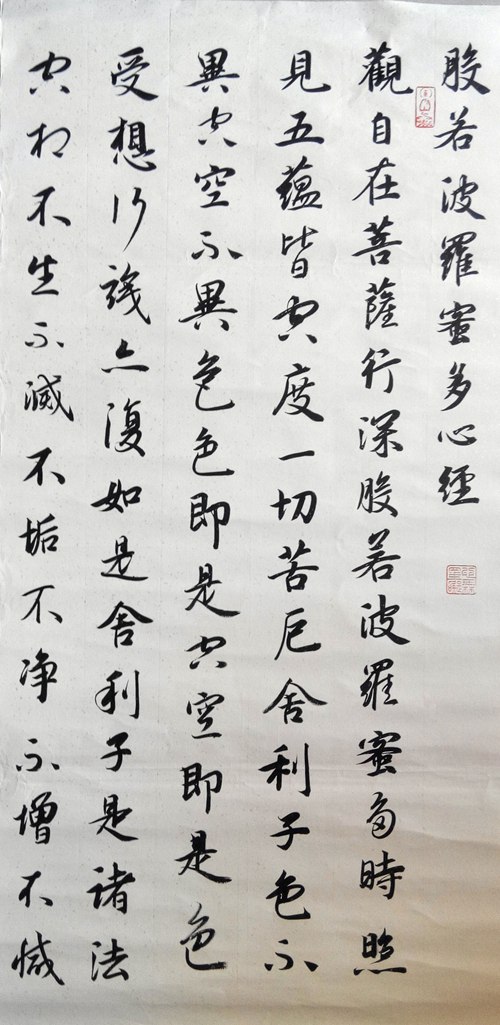 般若波羅蜜多心經
觀自在菩薩行深般若波羅蜜多時照
見五蘊皆空度一切苦厄舍利子色不
異空空不異色色即是空空即是色
受想行識亦復如是舍利子是諸法
空相不生不滅不垢不净不增不減